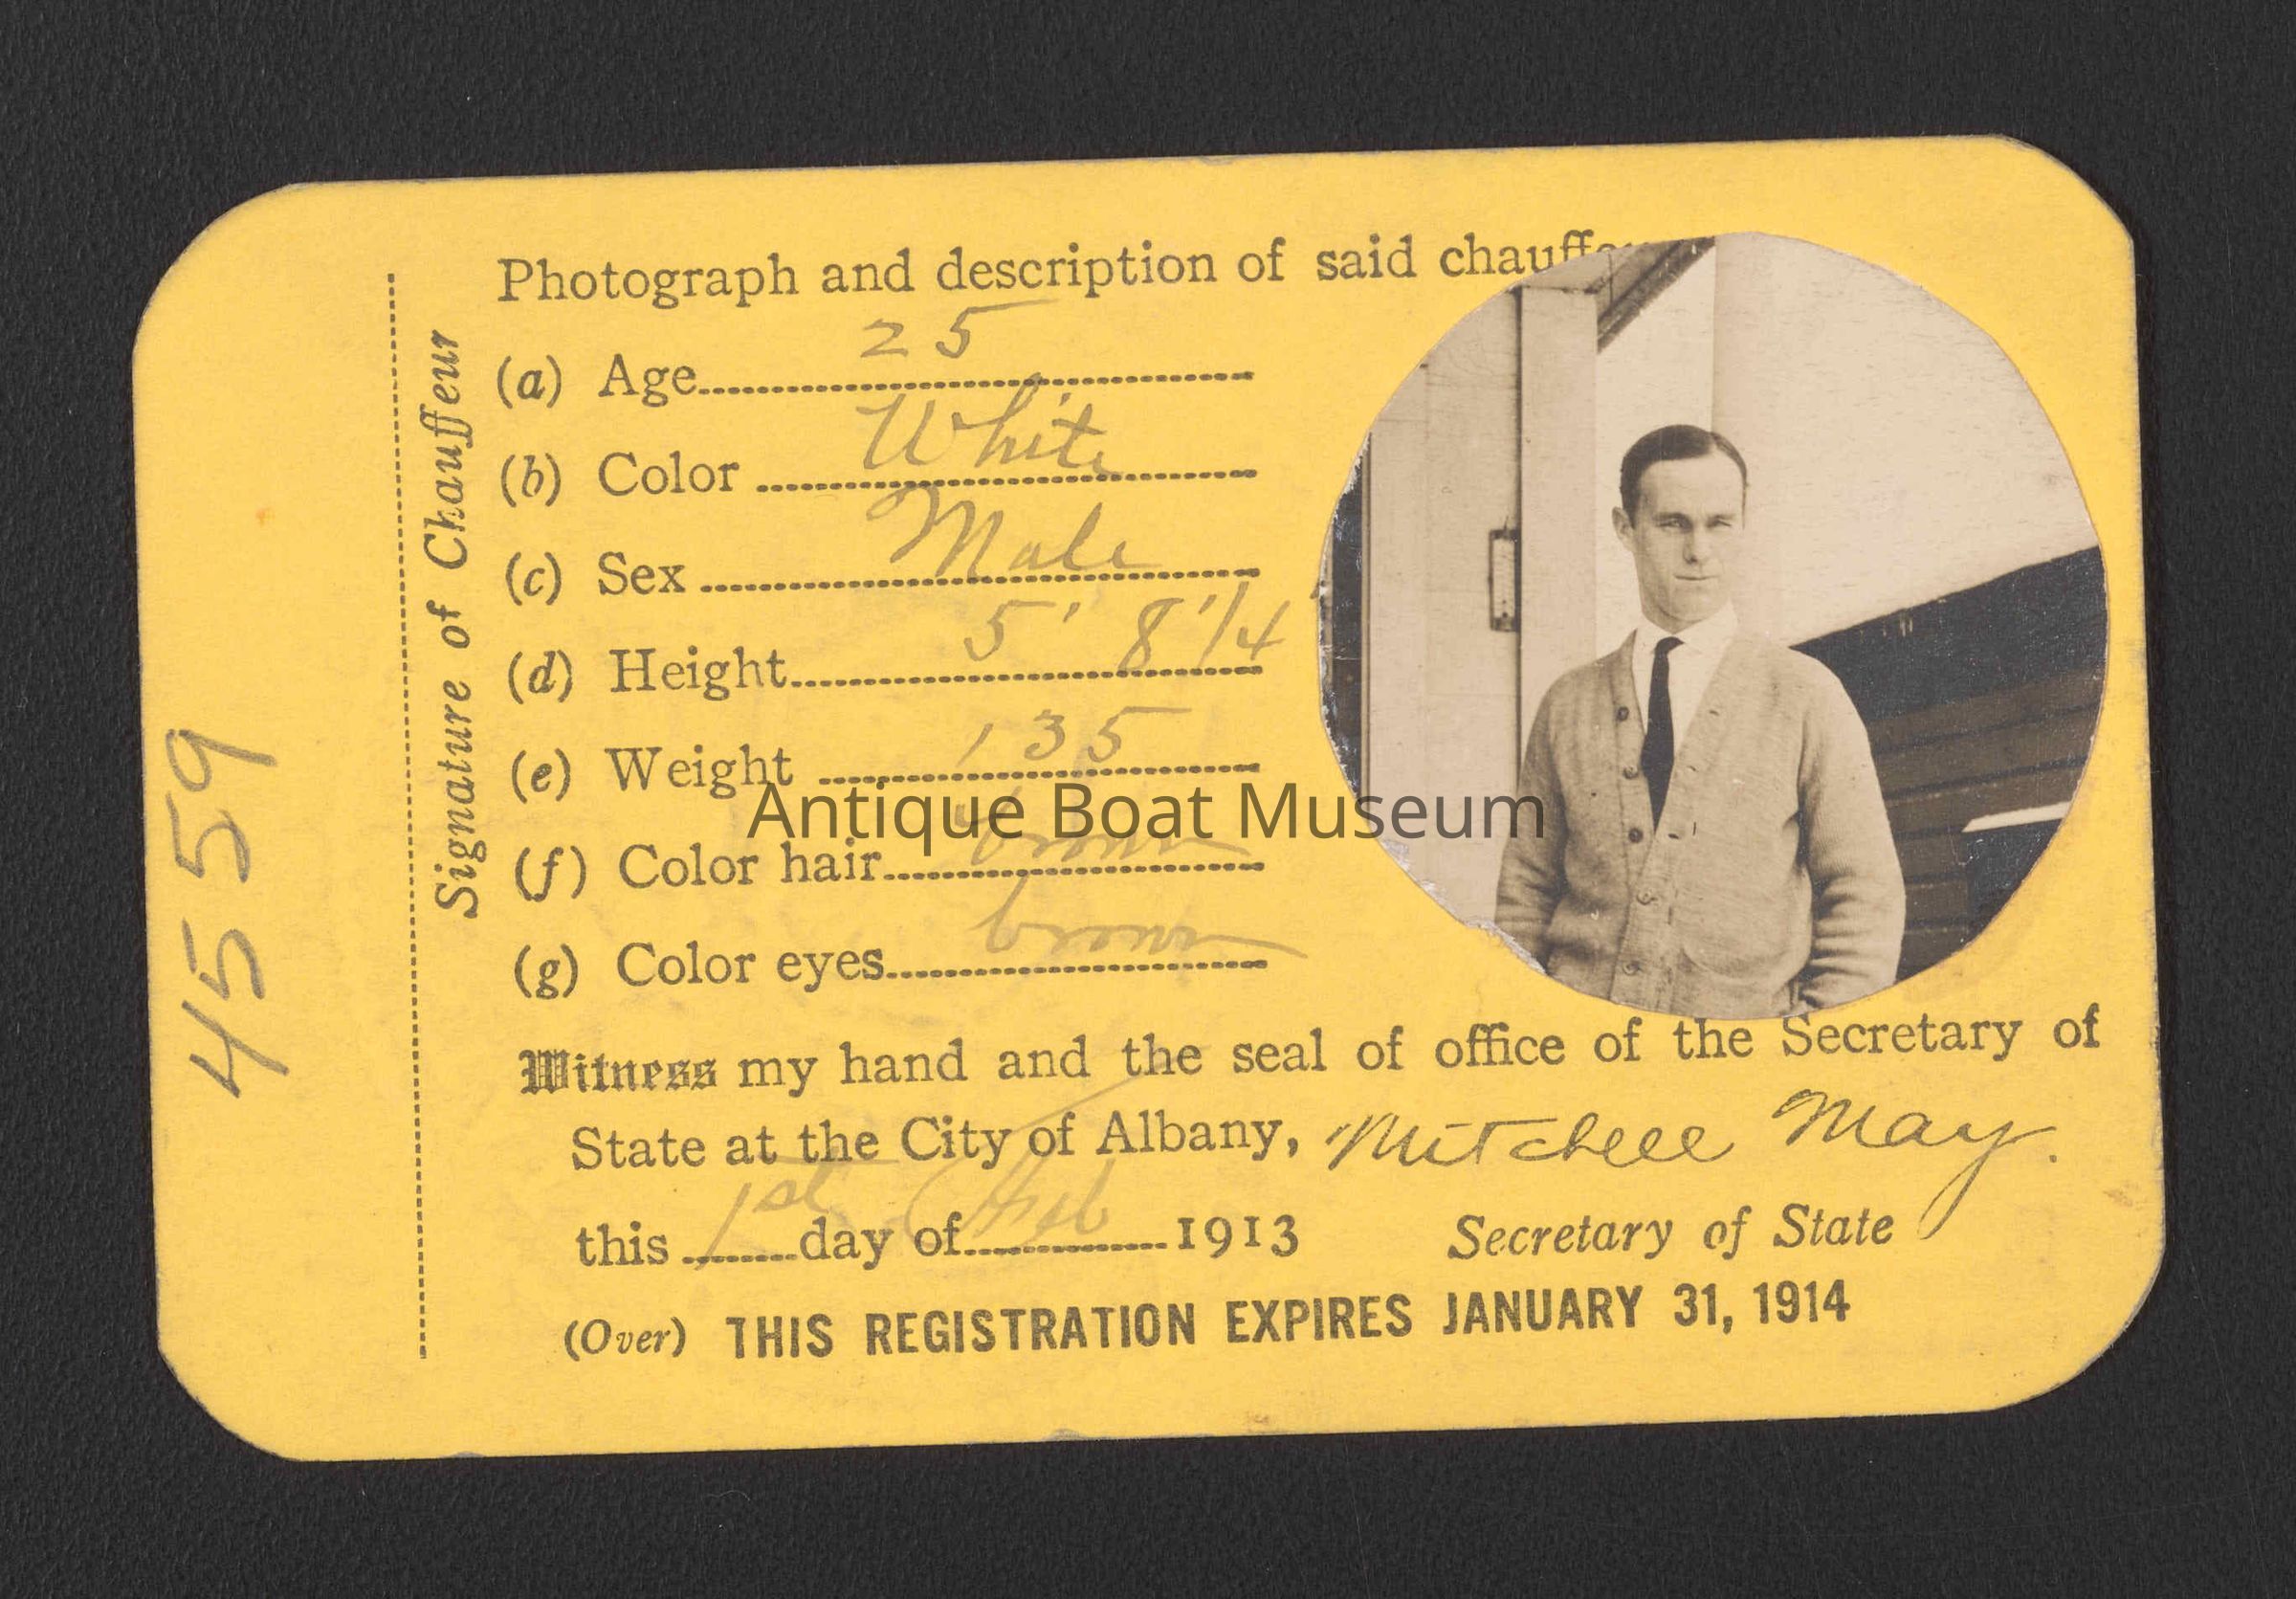 Photograph and description of said chauffeu
(a) Age 25
(b) Color White
(c) Sex Male
(d) Height 5' 8 1/4
(e) Weight 135
(f) Color hair brown
(g) Color eyes brown
Witness my hand and the seal of office of the Secretary of
State at the City of Albany, Mitchell May.
this 1st day of Feb 1913 Secretary of State
(Over) THIS REGISTRATION EXPIRES JANUARY 31, 1914
Signature of Chauffeur
4559
Antique Boat Museum